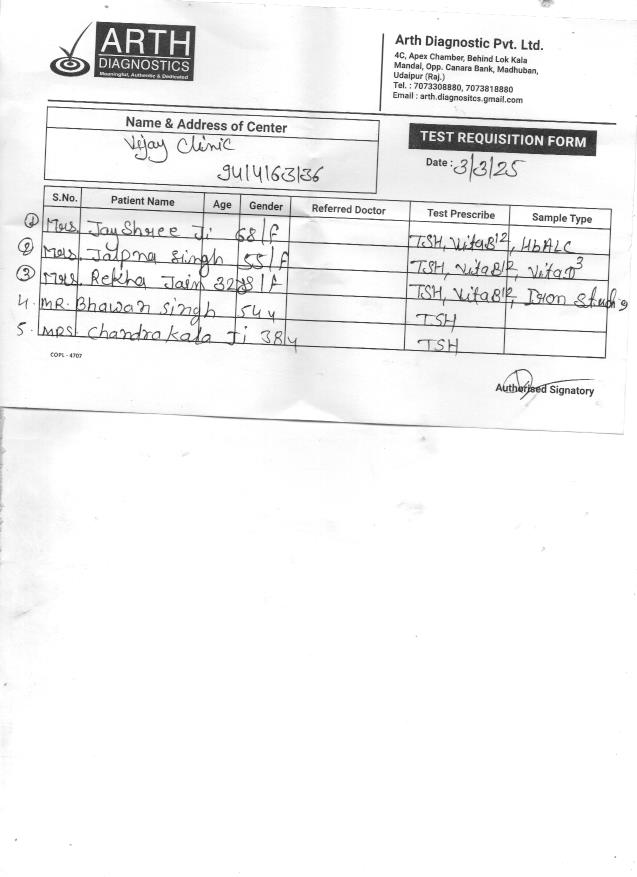 ARTH
DIAGNOSTICS
Meaningful, Authentic & Dedicated
Arth Diagnostic Pvt. Ltd.
4C, Apex Chamber, Behind Lok Kala
Mandal, Opp. Canara Bank, Madhuban,
Udaipur (Raj.)
Tel. : 7073308880, 7073818880
Email : arth.diagnositcs.gmail.com
Name & Address of Center
Vijay Clinic
9414163136
TEST REQUISITION FORM
Date : 3/3/25
S.No. Patient Name Age Gender Referred Doctor Test Prescribe Sample Type
1 Mrs. JayShree Ji 68/F TSH, VitaB12, HbA1C
2 Mrs. Singh 55/F TSH, VitaB12, VitaD3
3 Mrs. Rekha Jain /F TSH, VitaB12, Iron
4. MR. Bhawar Singh 54y TSH
5. MRS. Chandrakala Ji 38y TSH
COPL - 4707
Authorised Signatory